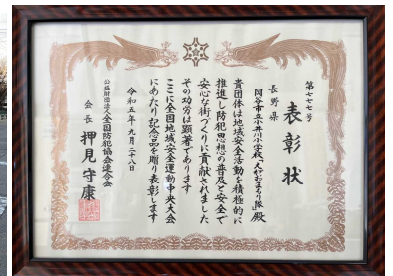 第七七七号
表彰状
長野県
岡谷市立小井川小学校「えがおまもり隊」殿
貴団体は地域安全活動を積極的に
推進し防犯思想の普及と安全で
安心な街づくりに貢献されました
その功労は顕著であります
ここに全国地域安全運動中央大会
にあたり記念品を贈り表彰します
令和五年九月二十八日
公益財団法人全国防犯協会連合会
会長 押見守康